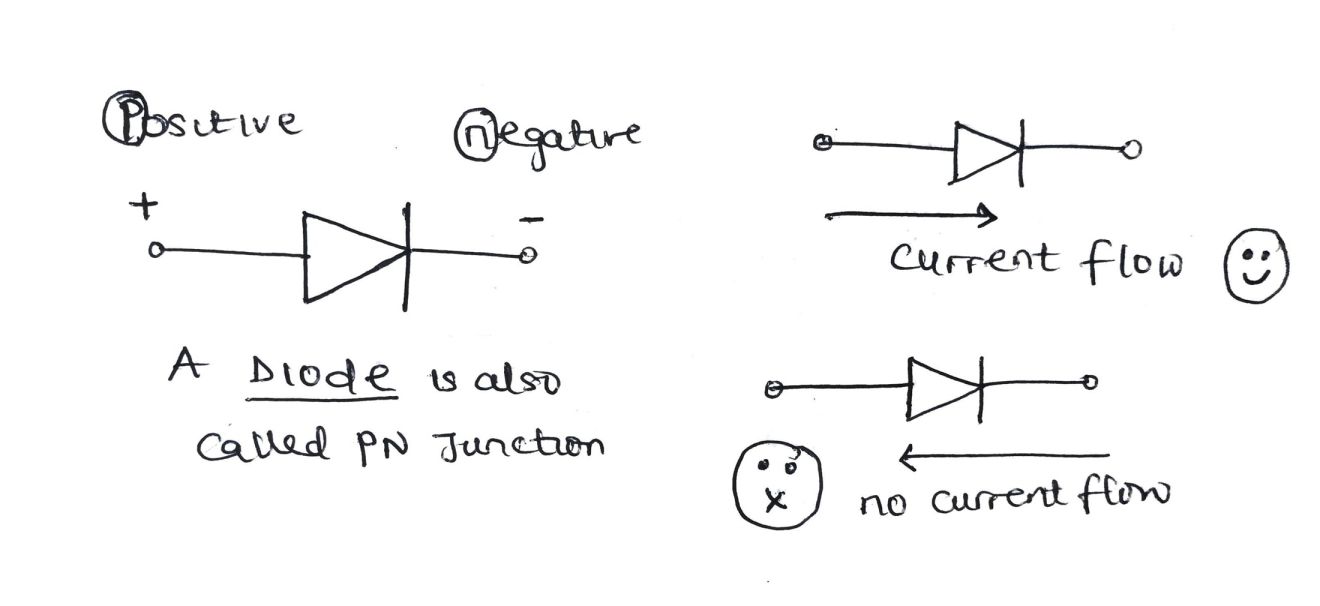 Positive negative
+ -
A Diode is also
called PN Junction
current flow
no current flow